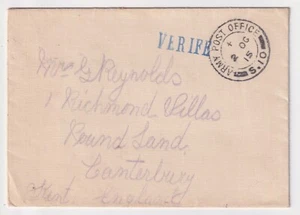 VERIFE
ARMY POST OFFICE
4
2 OC
15
S.10.
Mrs G Reynolds
1 Richmond Villas
Pound Land,
Canterbury
Kent, England